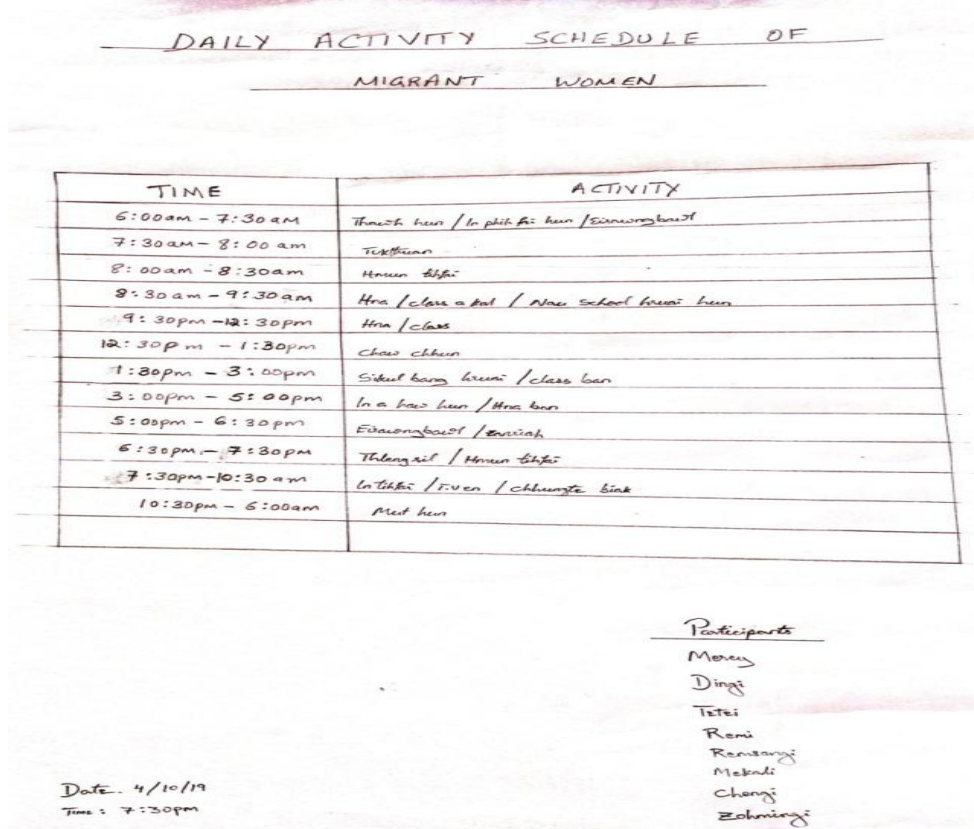 DAILY ACTIVITY SCHEDULE OF
MIGRANT WOMEN
TIME ACTIVITY
6:00am - 7:30am Thawh hun / In phih fai hun / Eirawngbawl
7:30am - 8:00 am Tukthuan
8:00am - 8:30am Hmun tihfai
8:30am - 9:30am Hna / class a kal / Nau School hruai hun
9:30pm - 12:30pm Hna / class
12:30pm - 1:30pm Chaw chhun
1:30pm - 3:00pm Sikul bang hruai / class ban
3:00pm - 5:00pm In a haw hun / Hna ban
5:00pm - 6:30pm Eirawngbawl / zanriah
6:30pm - 7:30pm Thlengsil / Hmun tihfai
7:30pm-10:30am In tihfai / T.V en / chhungte biak
10:30pm - 6:00am Mut hun
Participants
Mercy
Dingi
Tetei
Remi
Remsangi
Mekali
Date. 4/10/19
Chengi
Time: 7:30pm
Zohmingi